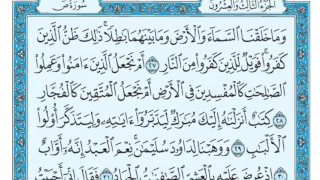 سُورَةُ صٓ
الجُزْءُ الثَّالِثُ وَالعِشْرُونَ
وَمَا خَلَقْنَا ٱلسَّمَآءَ وَٱلْأَرْضَ وَمَا بَيْنَهُمَا بَٰطِلًا ۚ ذَٰلِكَ ظَنُّ ٱلَّذِينَ
كَفَرُوا۟ ۚ فَوَيْلٌ لِّلَّذِينَ كَفَرُوا۟ مِنَ ٱلنَّارِ ٢٧ أَمْ نَجْعَلُ ٱلَّذِينَ ءَامَنُوا۟ وَعَمِلُوا۟
ٱلصَّٰلِحَٰتِ كَٱلْمُفْسِدِينَ فِى ٱلْأَرْضِ أَمْ نَجْعَلُ ٱلْمُتَّقِينَ كَٱلْفُجَّارِ
٢٨ كِتَٰبٌ أَنزَلْنَٰهُ إِلَيْكَ مُبَٰرَكٌ لِّيَدَّبَّرُوٓا۟ ءَايَٰتِهِۦ وَلِيَتَذَكَّرَ أُو۟لُوا۟
ٱلْأَلْبَٰبِ ٢٩ وَوَهَبْنَا لِدَاوُۥدَ سُلَيْمَٰنَ ۚ نِعْمَ ٱلْعَبْدُ ۖ إِنَّهُۥٓ أَوَّابٌ
٣٠ إِذْ عُرِضَ عَلَيْهِ بِٱلْعَشِىِّ ٱلصَّٰفِنَٰتُ ٱلْجِيَادُ ٣١ فَقَالَ إِنِّىٓ أَحْبَبْتُ